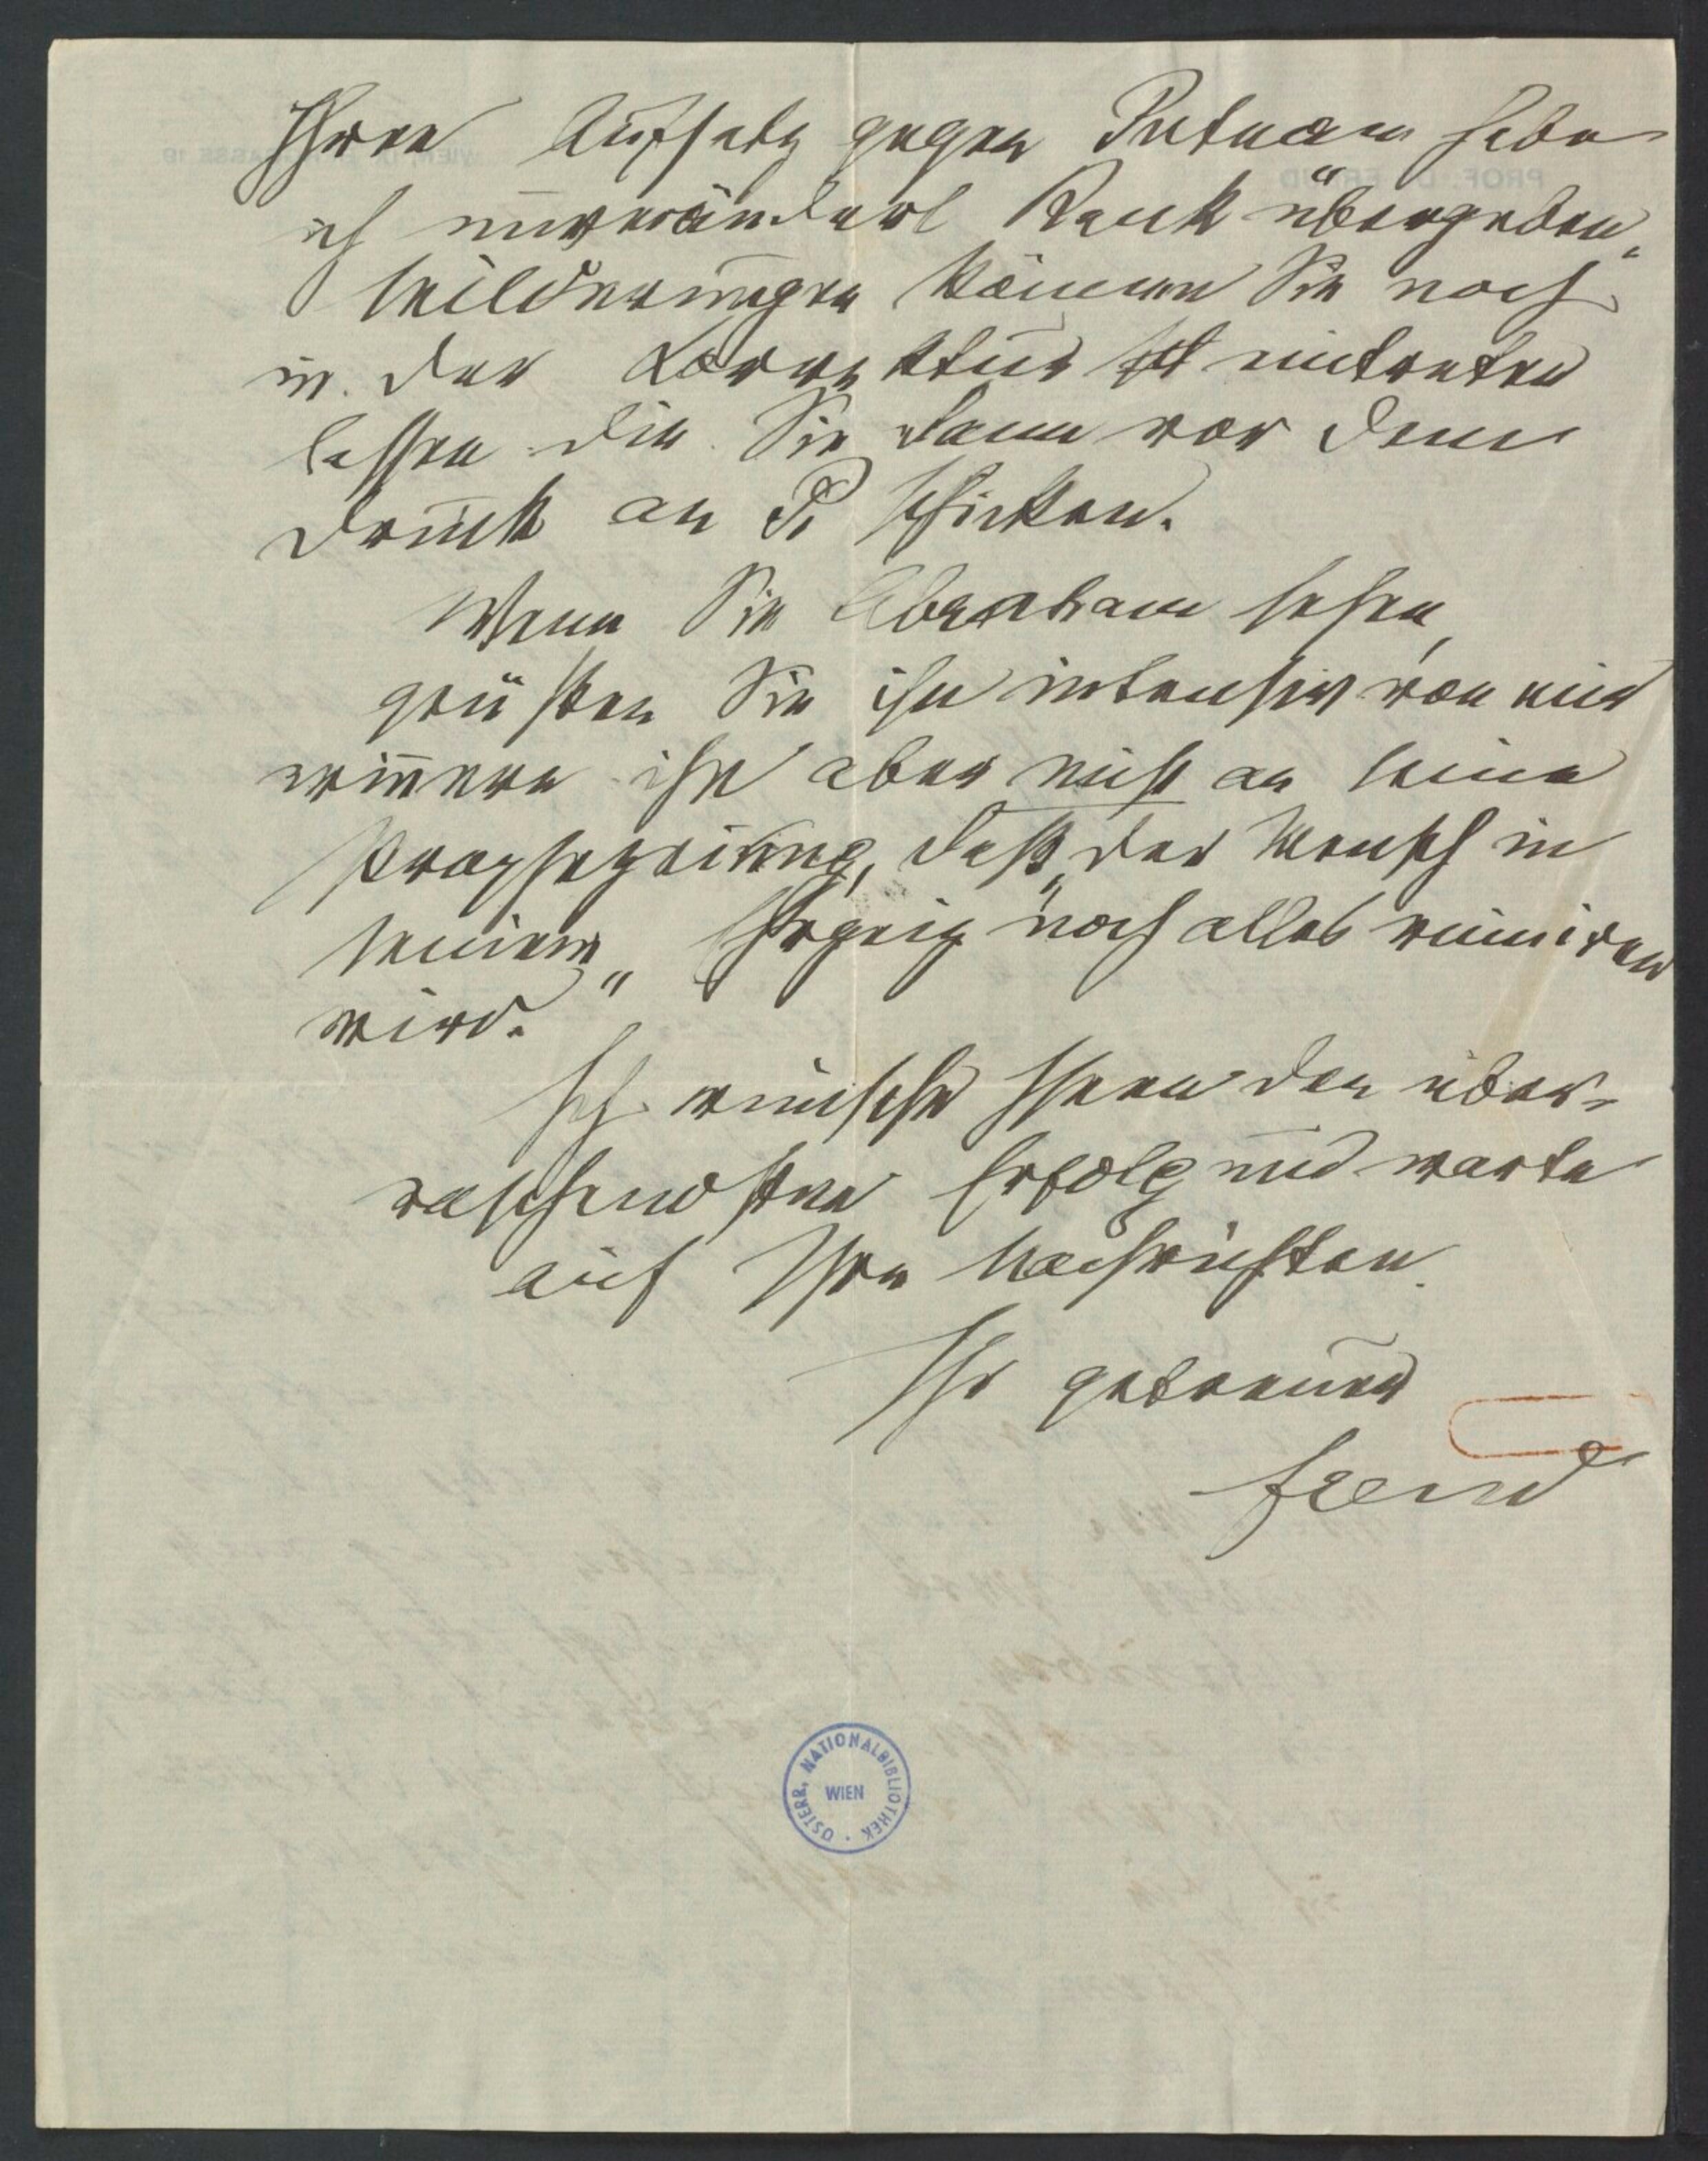 Ihren Aufsatz gegen Putnam habe
ich unverändert Rank übergeben,
Milderungen können Sie noch
in der Korrektur eintreten
lassen die Sie dann vor dem
Druck an P. schicken.
Wenn Sie Abraham sehen,
grüßen Sie ihn intensiv von mir
erinnern ihn aber nicht an seine
Prophezeiung, daß „der Mensch in
seinem Ehrgeiz noch alles ruiniren
wird.“
Ich wünsche Ihnen den über-
raschendsten Erfolg und warte
auf Ihre Nachrichten.
Ihr getreuer
Freud
ÖSTERR. NATIONALBIBLIOTHEK ·
WIEN